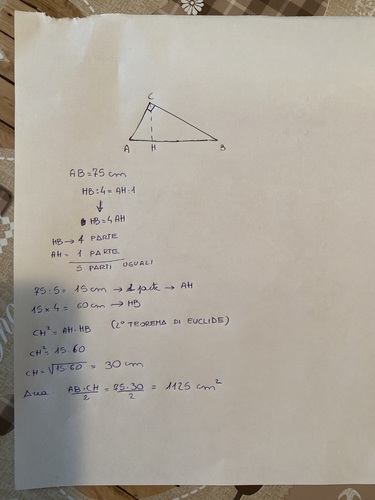 C
A H B
AB=75 cm
HB:4=AH:1
HB=4 AH
HB → 4 PARTE
AH = 1 PARTE
5 PARTI UGUALI
75:5= 15 cm → 1 parte → AH
15×4 = 60 cm → HB
CH²= AH·HB (2° TEOREMA DI EUCLIDE)
CH²= 15·60
CH=√15·60 = 30 cm
Area AB·CH/2 = 75·30/2 = 1125 cm²